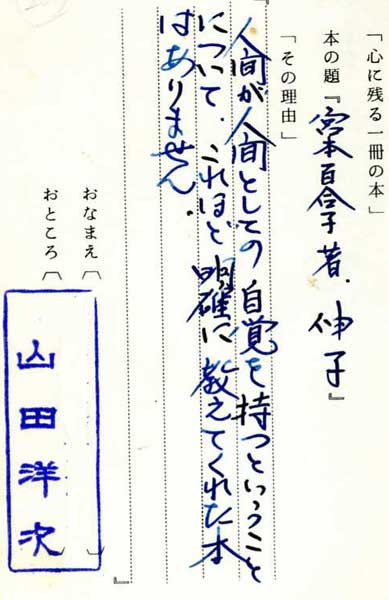 「心に残る一冊の本」
本の題『宮本百合子著.伸子』
「その理由」
人間が人間としての自覚を持つということ
について.これほど明確に教えてくれた本
はありません.
』
おなまえ〔 〕
おところ〔 〕
山田洋次